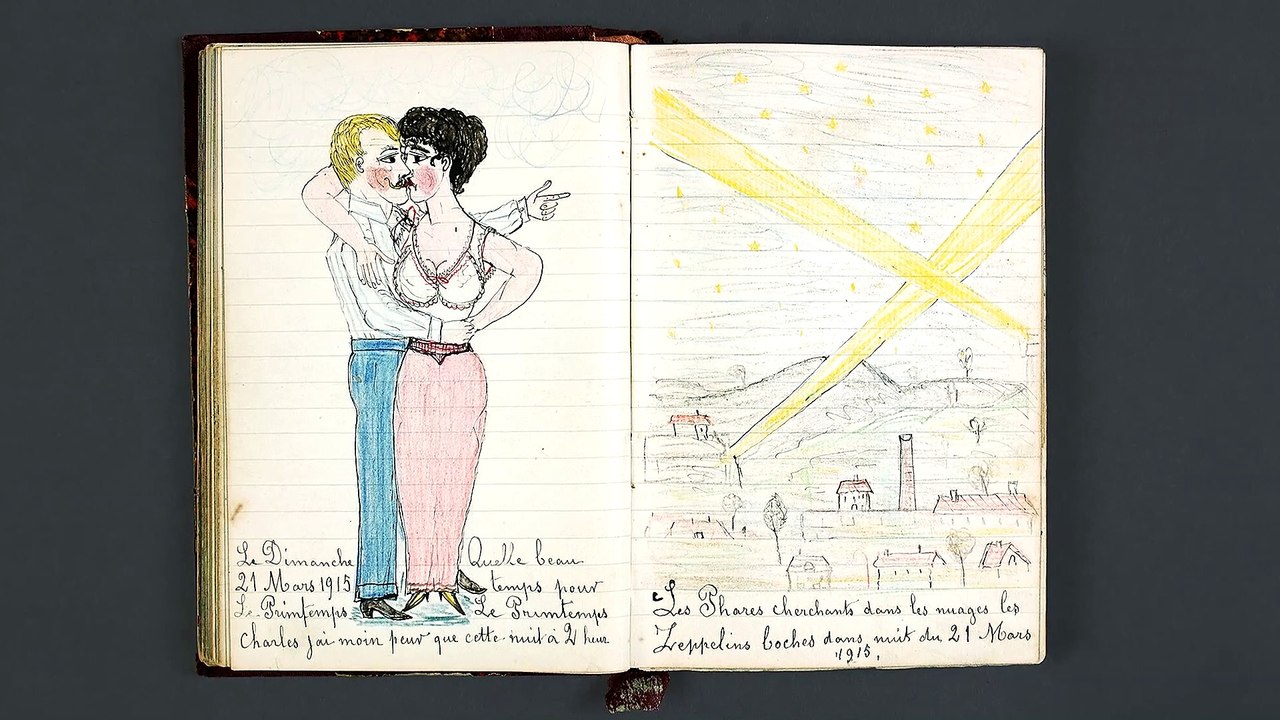 Le Dimanche
21 Mars 1915
Le Printemps
Quelle beau
temps pour
Le Printemps
Charles j'ai moin peur que cette nuit à 2 heur
Les Phares cherchants dans les nuages les
Zeppelins boches dans nuit du 21 Mars
1915.